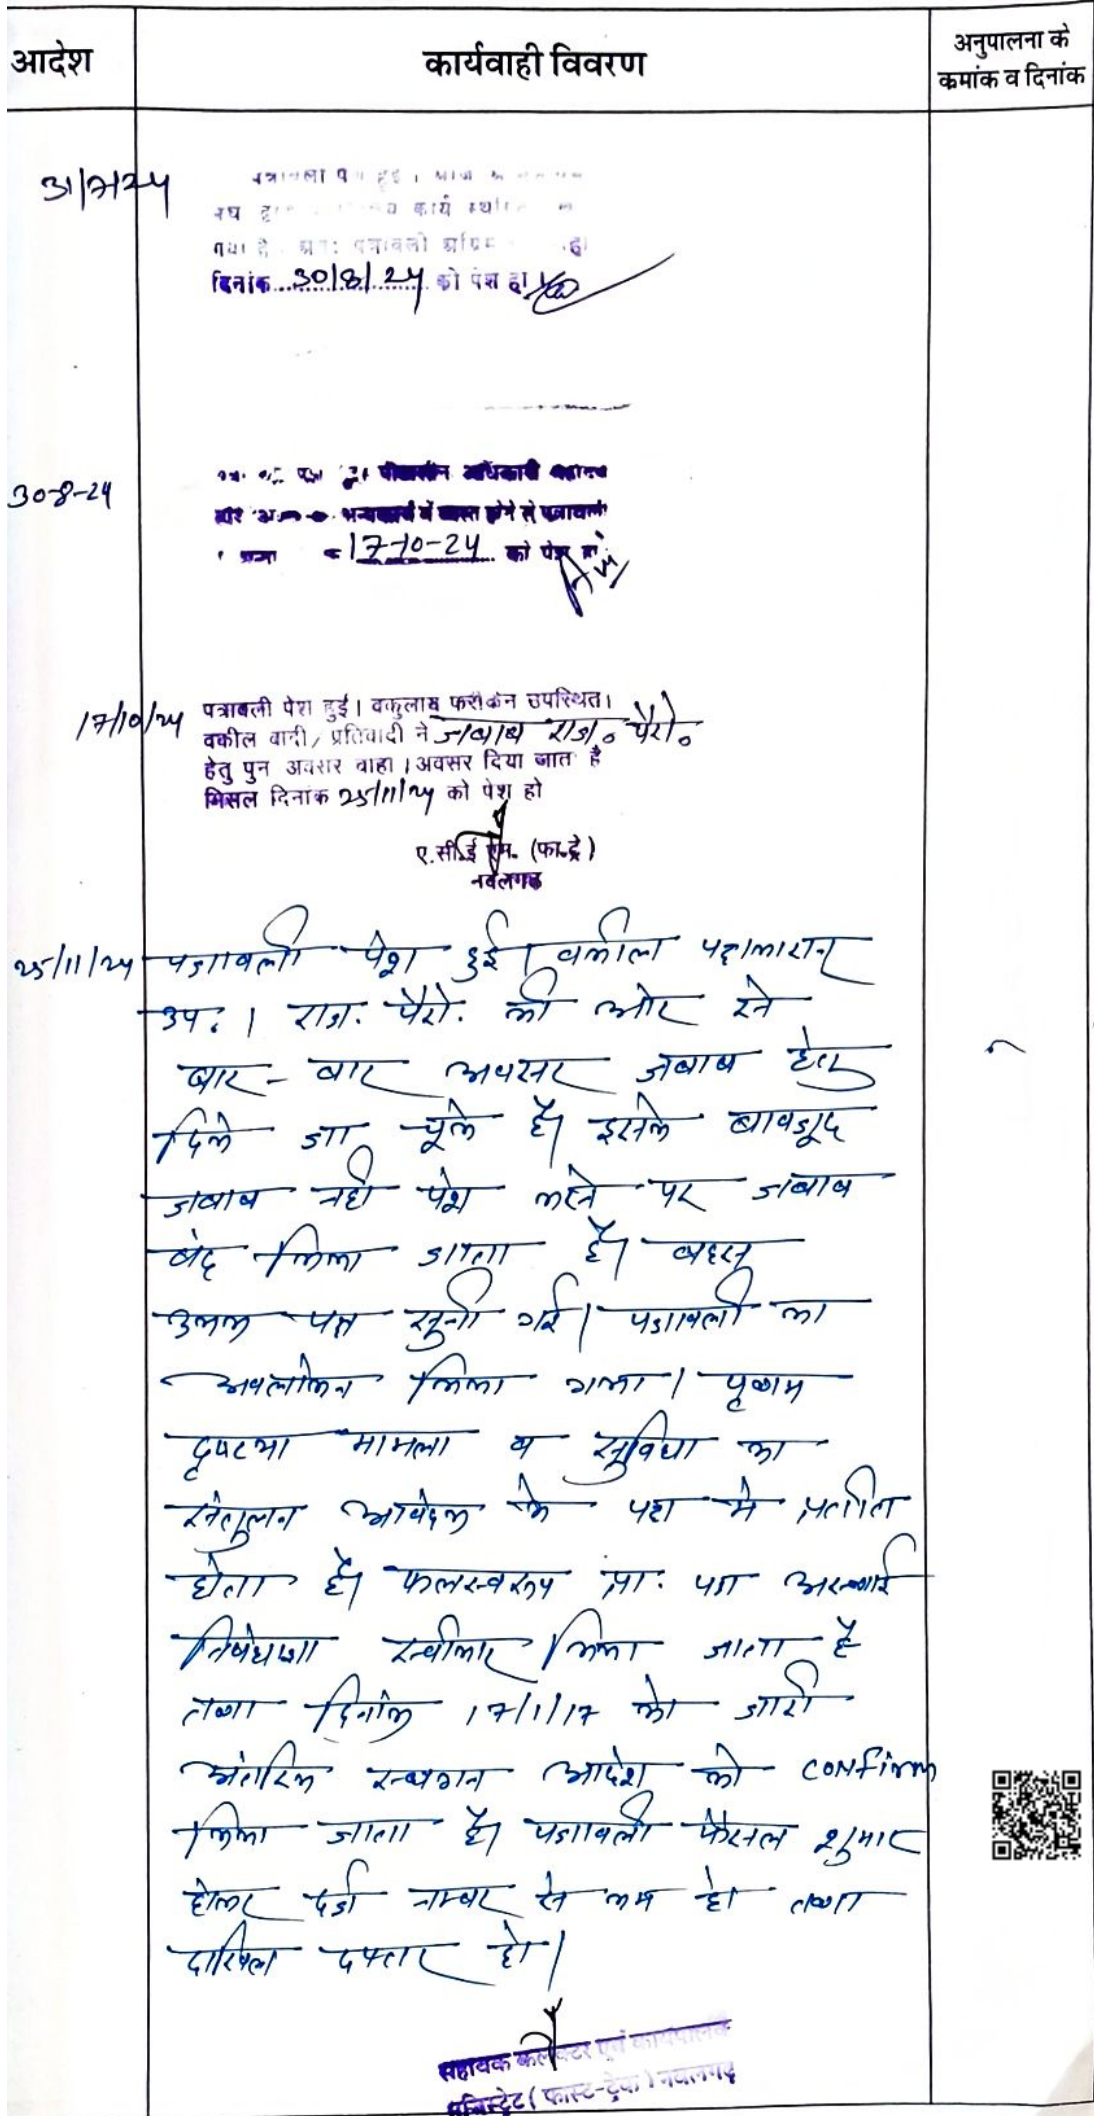 आदेश
कार्यवाही विवरण
अनुपालना के
कमांक व दिनांक
31/7/24
हुई। आज
कार्य
गया है अतः पत्रावली
दिनांक 30/8/24 को पेश हो
30-8-24
अधिकारी
अन्यकार्य में व्यस्त होने से पत्रावली
17-10-24 को पेश हो
17/10/24
पत्रावली पेश हुई। वकुलाय फरीकेन उपस्थित।
वकील वादी/प्रतिवादी ने जबाब राज० पैरो०
हेतु पुन अवसर चाहा। अवसर दिया जाता है
मिसल दिनांक 25/11/24 को पेश हो
ए.सी.ई एम. (फा.ट्रे)
नवलगढ
25/11/24
पत्रावली पेश हुई। वकील पक्षकारान
उप.। राज. पैरो. की ओर से
बार-बार अवसर जबाब हेतु
दिये जा चूके है। इसके बावजूद
जबाब नही पेश करने पर जबाब
बंद किया जाता है। बहस
उभय पक्ष सुनी गई। पत्रावली का
अवलोकन किया गया। प्रथम
दृष्टया मामला व सुविधा का
संतुलन आवेदक के पक्ष मे प्रतीत
होता है। फलस्वरूप प्रा. पत्र अस्थाई
निषेधाज्ञा स्वीकार किया जाता है
तथा दिनांक 17/1/17 को जारी
अंतरिम स्थगन आदेश को confirm
किया जाता है। पत्रावली फैसल शुमार
होकर दर्ज नम्बर से कम हो तथा
दाखिल दफ्तर हो।
सहायक कलेक्टर एवं कार्यपालक
मजिस्ट्रेट (फास्ट-ट्रेक) नवलगढ़